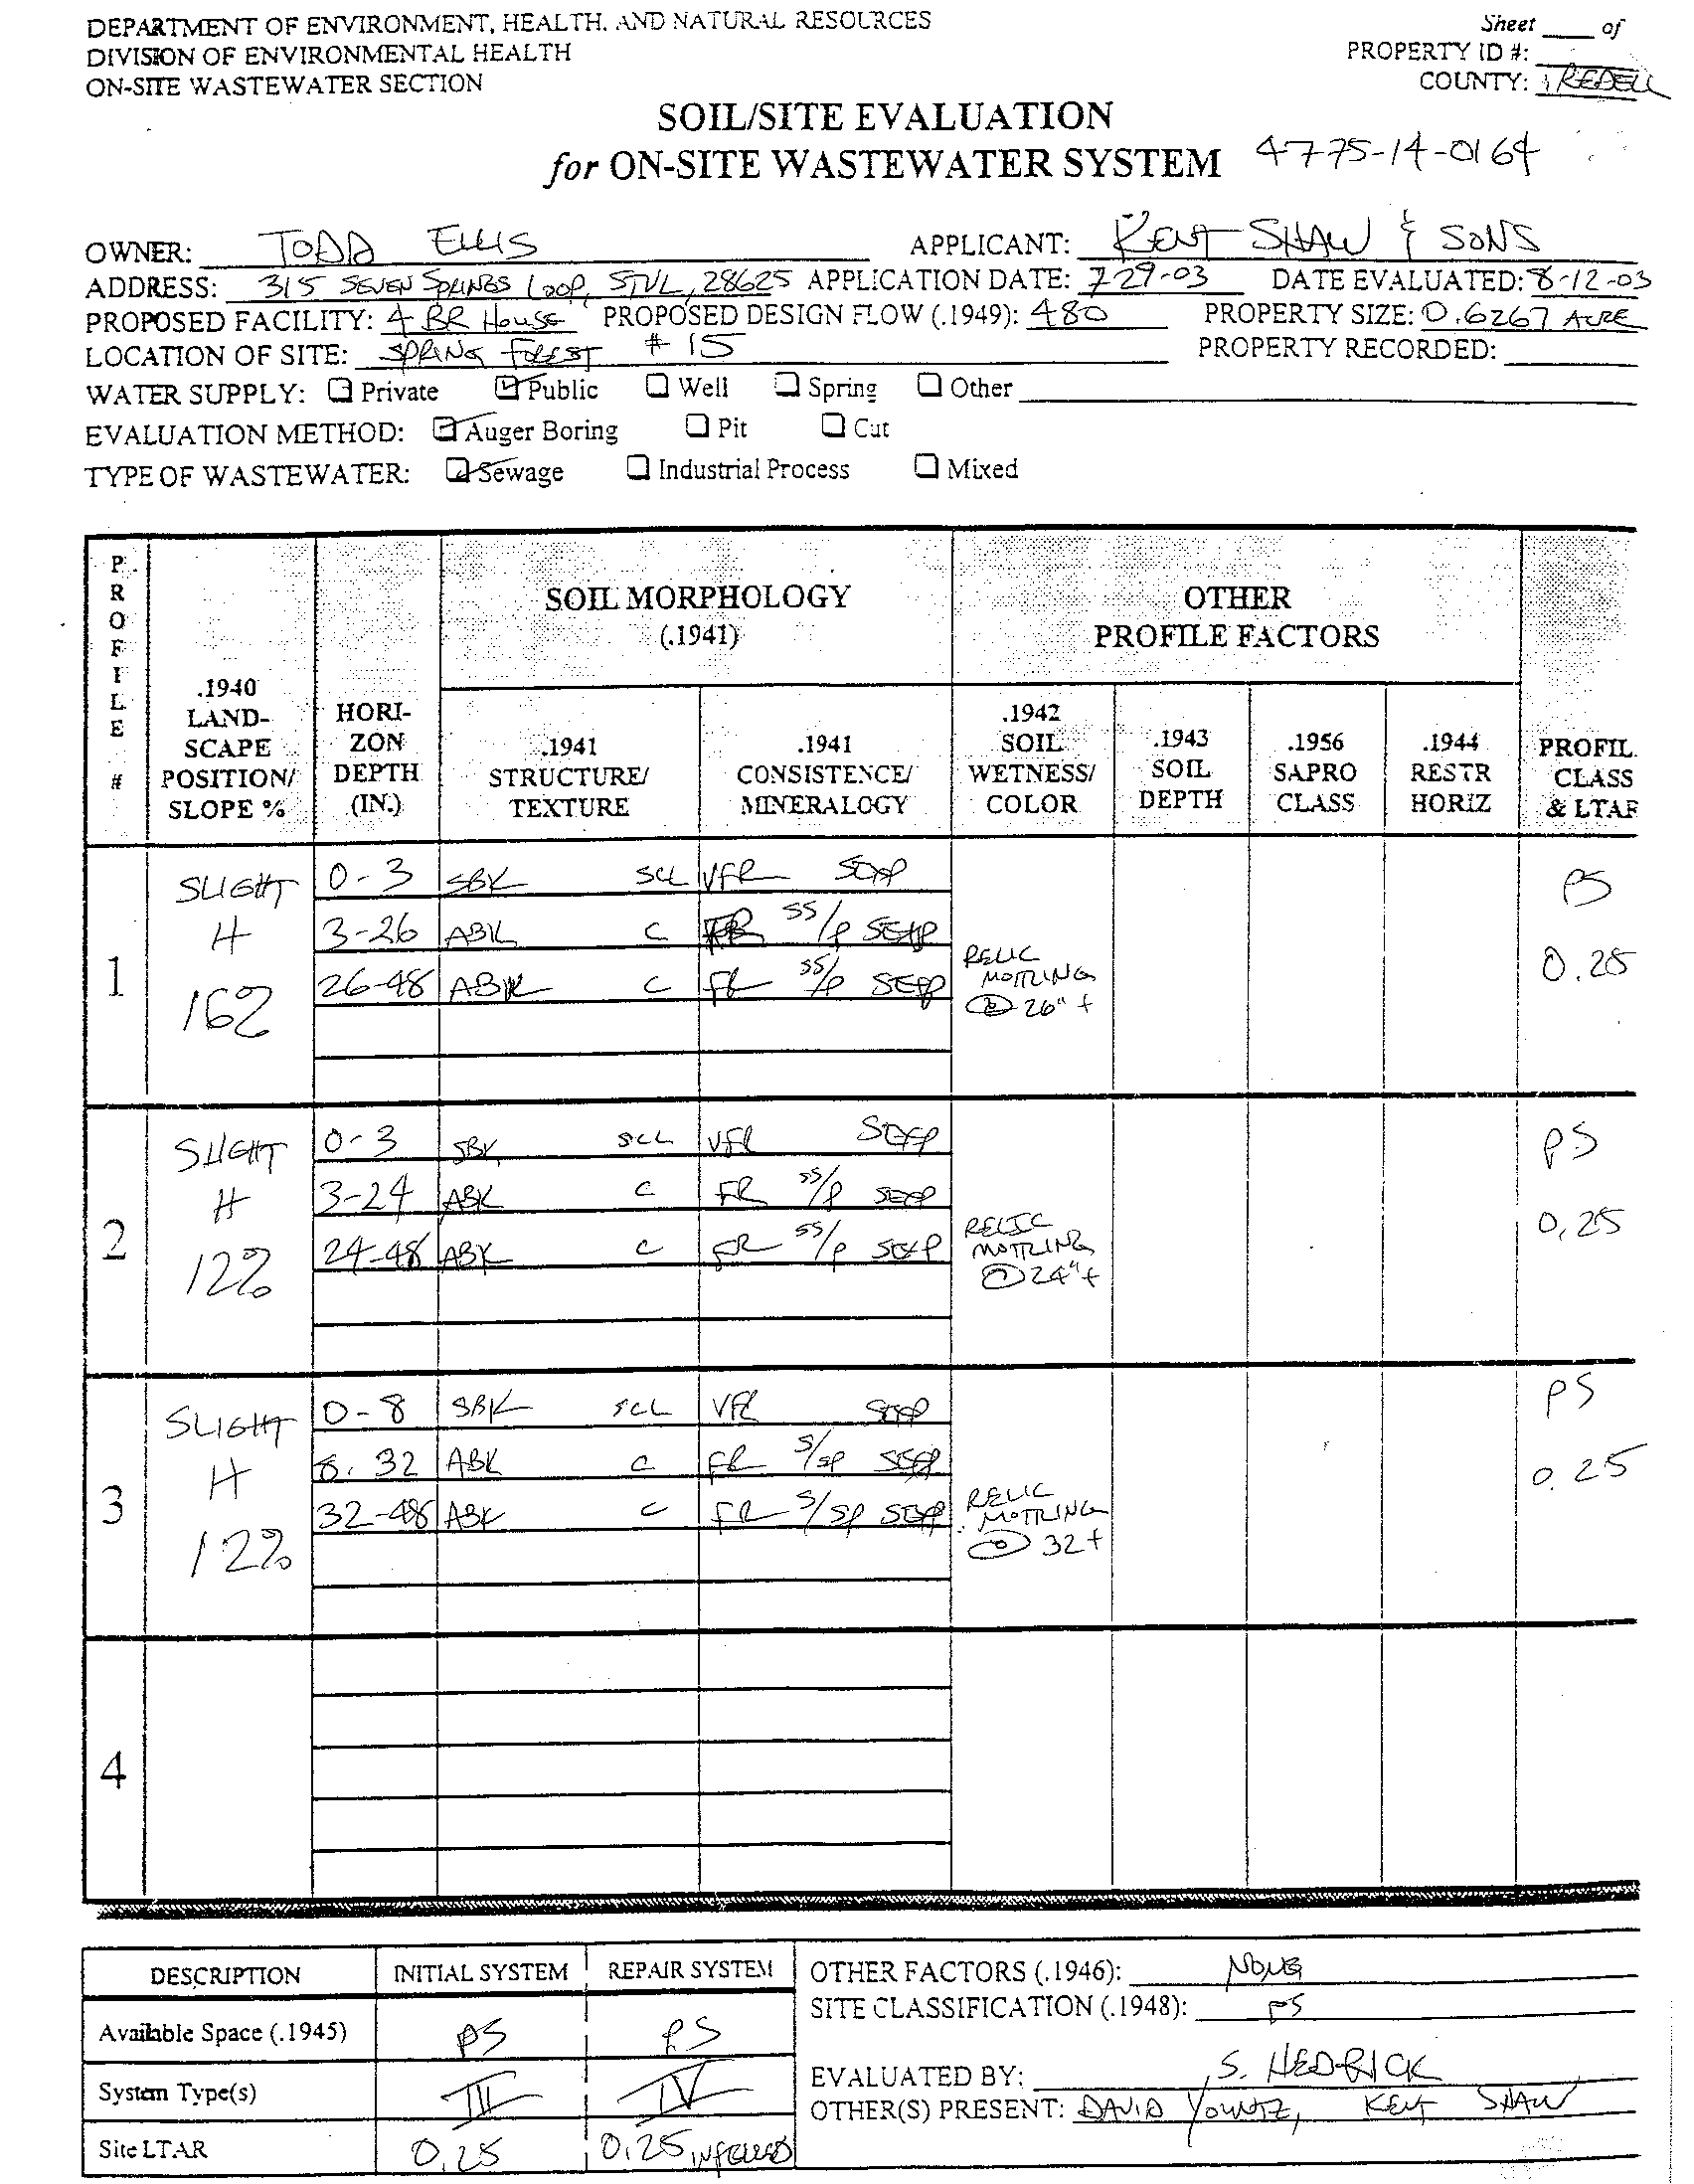 DEPARTMENT OF ENVIRONMENT, HEALTH, AND NATURAL RESOURCES
Sheet ____ of
DIVISION OF ENVIRONMENTAL HEALTH
PROPERTY ID #:
ON-SITE WASTEWATER SECTION
COUNTY: IREDELL
SOIL/SITE EVALUATION
for ON-SITE WASTEWATER SYSTEM 4775-14-0164
OWNER: TODD ELLIS APPLICANT: KENT SHAW & SONS
ADDRESS: 315 SEVEN SPRINGS LOOP, STVL, 28625 APPLICATION DATE: 7-29-03 DATE EVALUATED: 8-12-03
PROPOSED FACILITY: 4 BR House PROPOSED DESIGN FLOW (.1949): 480 PROPERTY SIZE: 0.6267 ACRE
LOCATION OF SITE: SPRING FOREST # 15 PROPERTY RECORDED:
WATER SUPPLY: Private Public Well Spring Other
EVALUATION METHOD: Auger Boring Pit Cut
TYPE OF WASTEWATER: Sewage Industrial Process Mixed
PROFILE #
.1940 LAND-SCAPE POSITION/ SLOPE %
HORI-ZON DEPTH (IN.)
SOIL MORPHOLOGY
(.1941)
OTHER
PROFILE FACTORS
.1941 STRUCTURE/ TEXTURE
.1941 CONSISTENCE/ MINERALOGY
.1942 SOIL WETNESS/ COLOR
.1943 SOIL DEPTH
.1956 SAPRO CLASS
.1944 RESTR HORIZ
PROFIL CLASS & LTAR
1
SLIGHT
H
16%
0-3 SBK SCL VFR SEXP
3-26 ABK C FR SS/P SEXP
26-48 ABK C FR SS/P SEXP
RELIC
MOTTLING
@ 26" +
PS
0.25
2
SLIGHT
H
12%
0-3 SBK SCL VFR SEXP
3-24 ABK C FR SS/P SEXP
24-48 ABK C FR SS/P SEXP
RELIC
MOTTLING
@ 24" +
PS
0.25
3
SLIGHT
H
12%
0-8 SBK SCL VFR SEXP
8-32 ABK C FR S/SP SEXP
32-48 ABK C FR S/SP SEXP
RELIC
MOTTLING
@ 32+
PS
0.25
4
DESCRIPTION INITIAL SYSTEM REPAIR SYSTEM
Available Space (.1945) PS PS
System Type(s) III IV
Site LTAR 0.25 0.25 INFERRED
OTHER FACTORS (.1946): NONE
SITE CLASSIFICATION (.1948): PS
EVALUATED BY: S. HEDRICK
OTHER(S) PRESENT: DAVID YOUNTZ, KENT SHAW